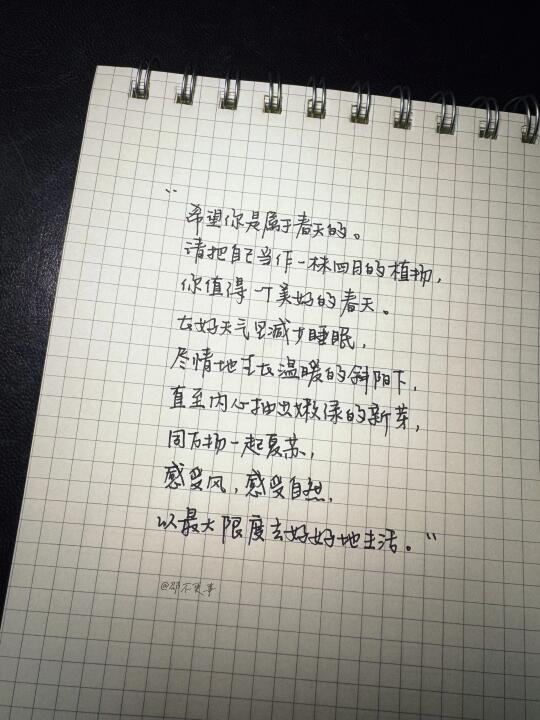 “
希望你是属于春天的。
请把自己当作一株四月的植物，
你值得一个美好的春天。
在好天气里减少睡眠，
尽情地走在温暖的斜阳下，
直至内心抽出嫩绿的新芽，
同万物一起复苏，
感受风，感受自然，
以最大限度去好好地生活。”
@邵不更事